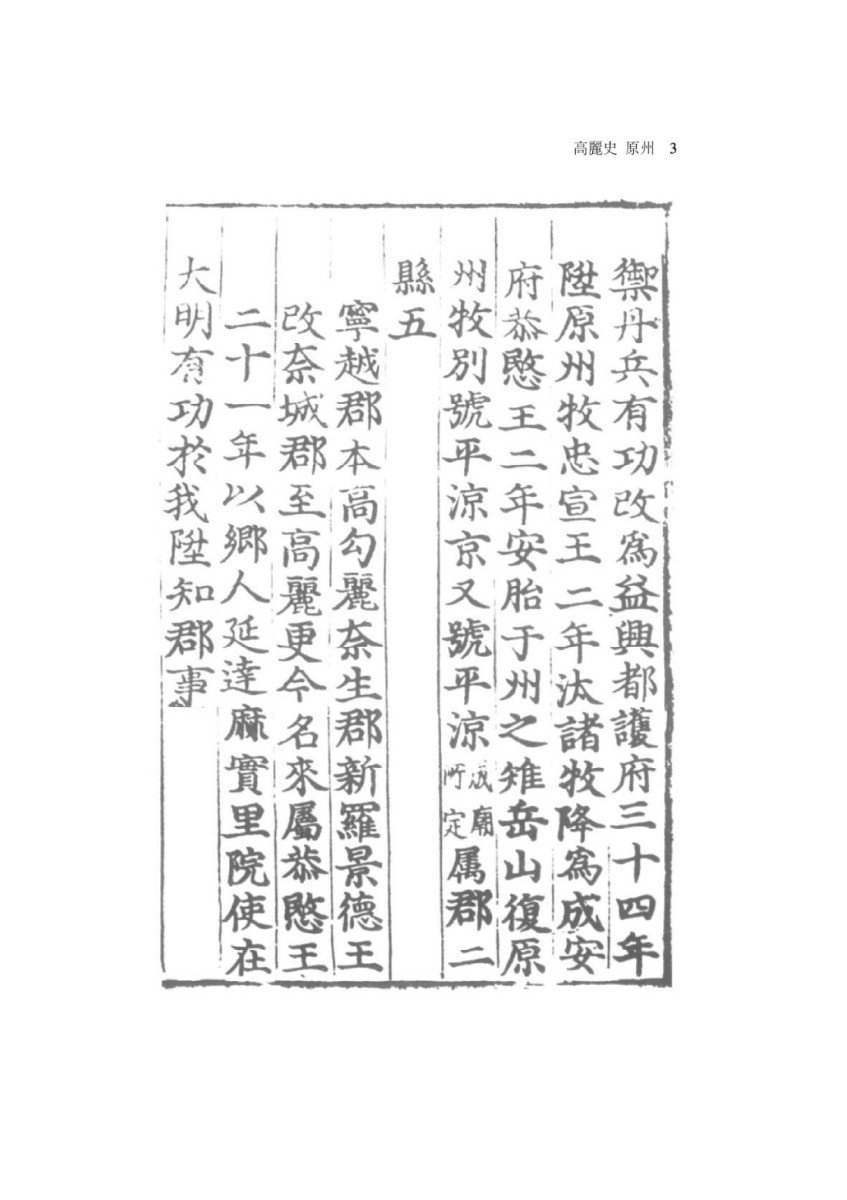 高麗史 原州 3
禦丹兵有功改爲益興都護府三十四年
陞原州牧忠宣王二年汰諸牧降爲成安
府恭愍王二年安胎于州之雉岳山復原
州牧別號平涼京又號平涼成廟所定属郡二
縣五
寧越郡本高勾麗奈生郡新羅景德王
改奈城郡至高麗更今名來屬恭愍王
二十一年以鄉人延達麻實里院使在
大明有功於我陞知郡事